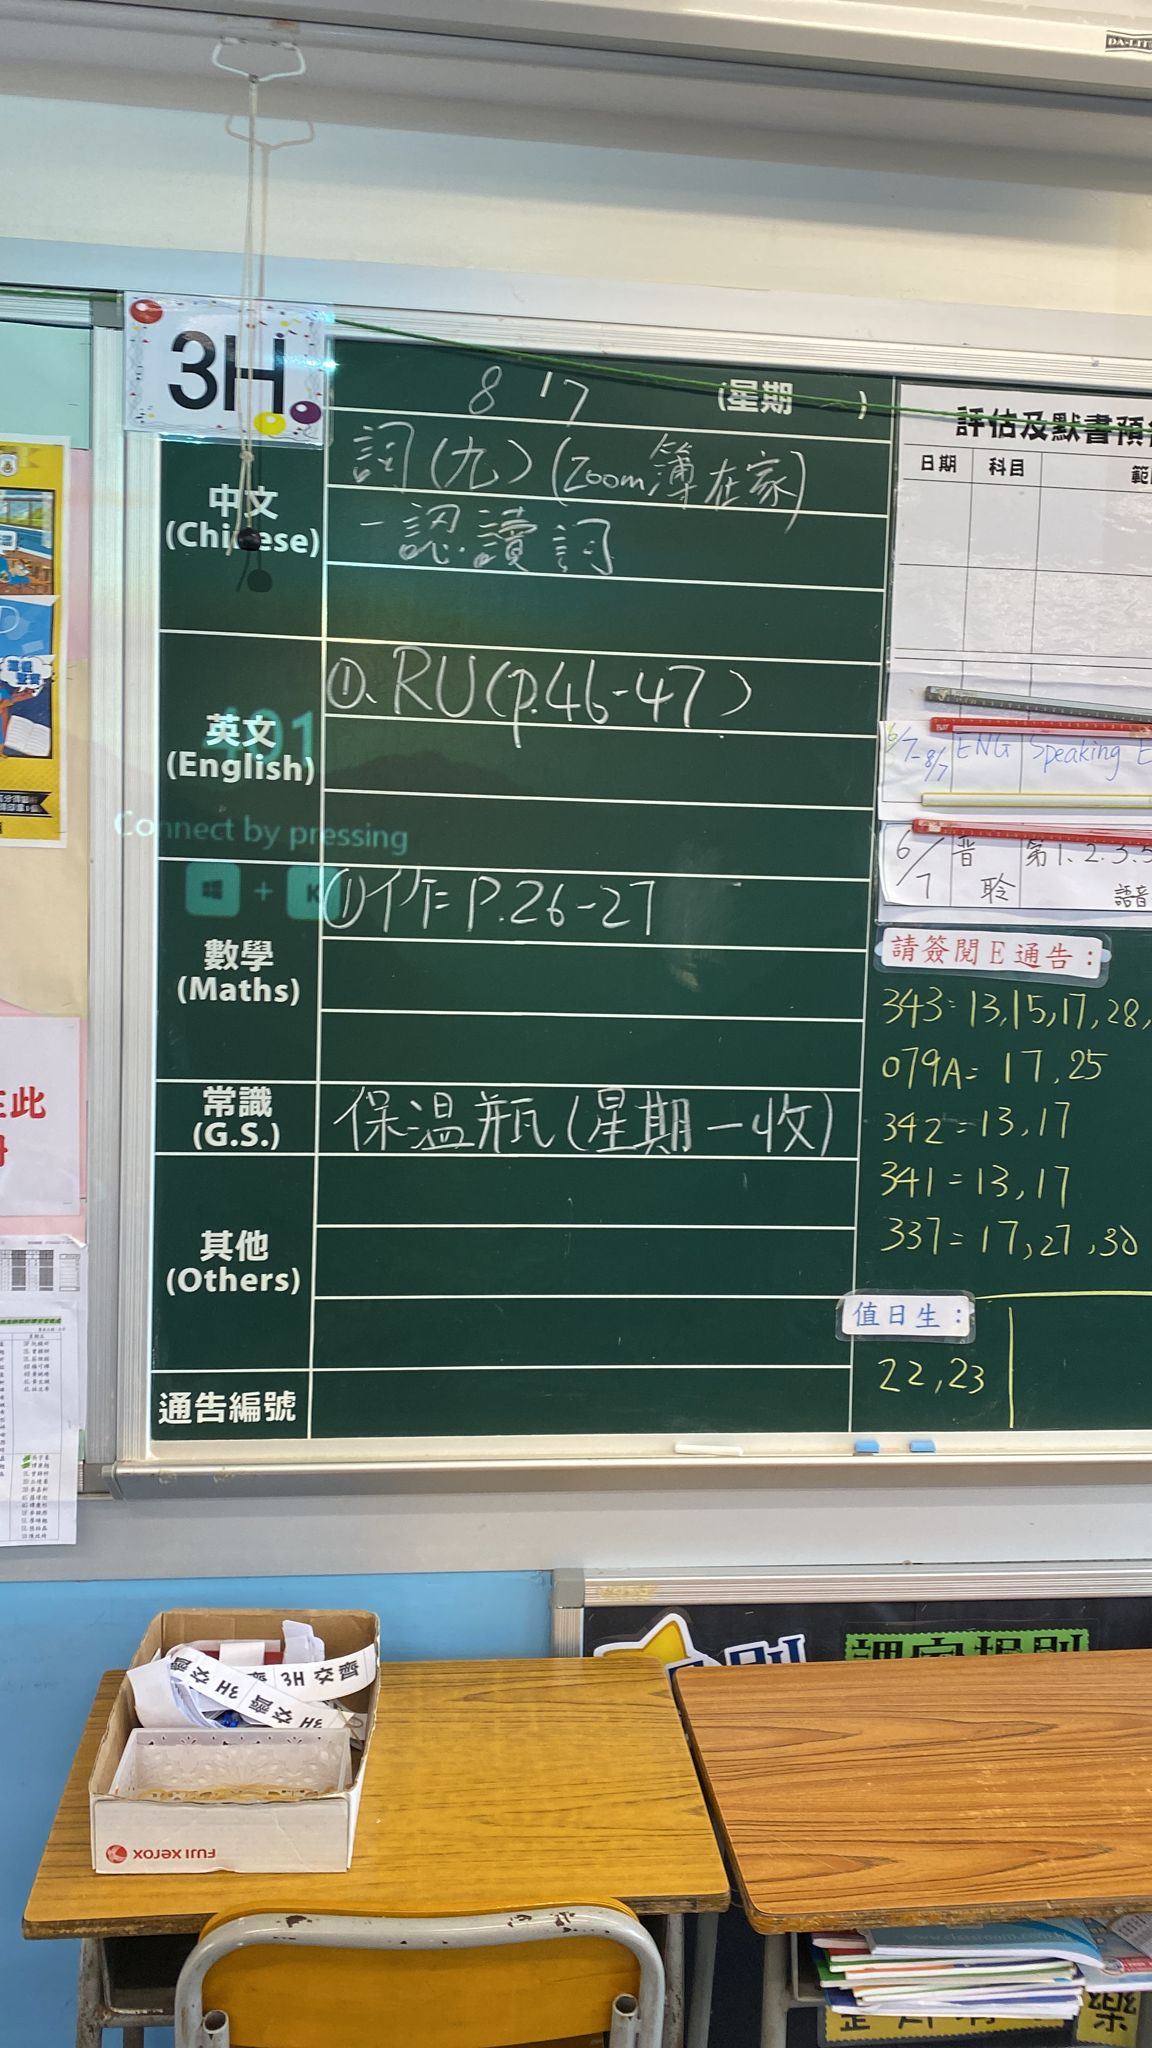 DA-LIT
3H
8 17
(星期 )
中文
(Chinese)
詞(九)(Zoom簿在家)
-認讀詞
英文
(English)
①. RU(p.46-47)
401
Connect by pressing
+ K
數學
(Maths)
①作 P.26-27
常識
(G.S.)
保溫瓶(星期一收)
其他
(Others)
通告編號
評估及默書預
日期 科目 範
6/7-8/7 ENG Speaking E
6/7 普聆 第1.2.3.5
語音
請簽閱E通告:
343=13,15,17,28,
079A= 17,25
342=13,17
341=13,17
337=17,27,30
值日生:
22,23
在此
3H 交齊
3H 交齊
3H
FUJI XEROX
樂